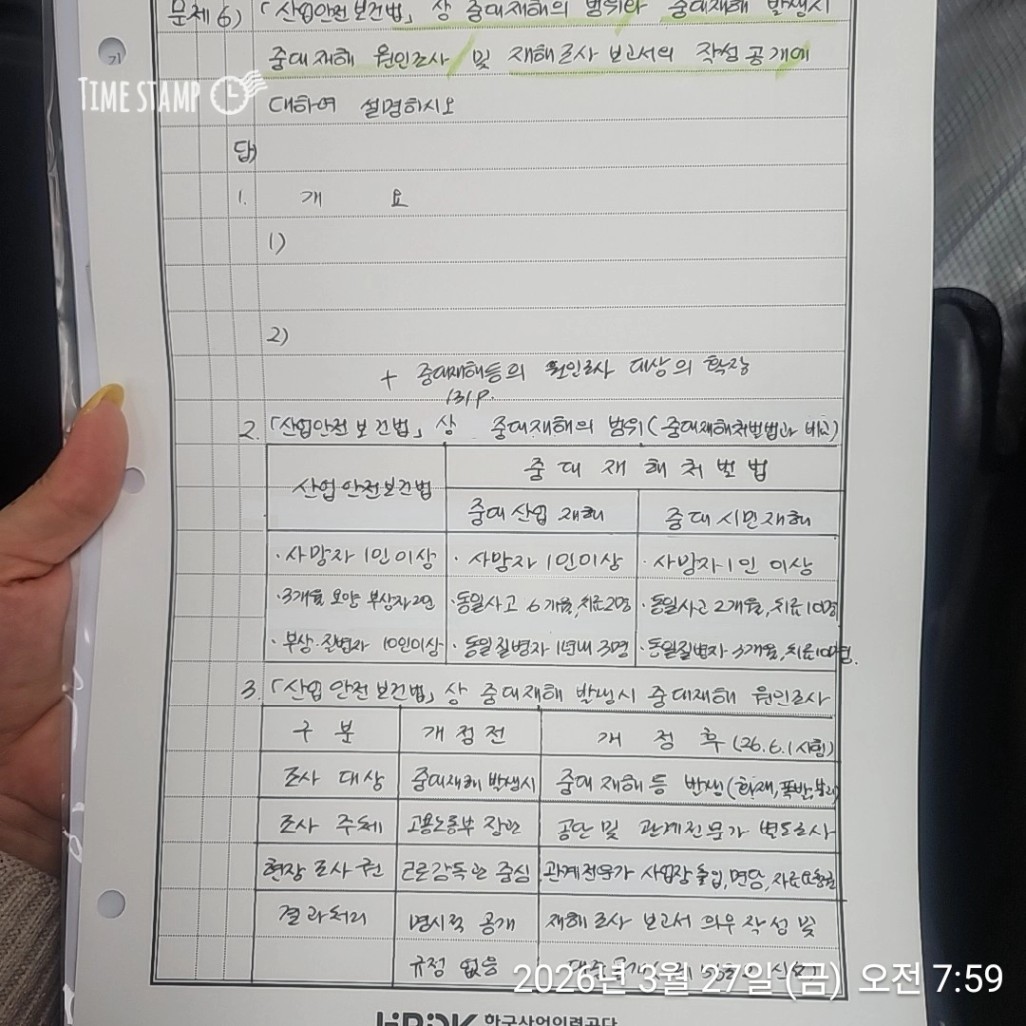 문제 6) 「산업안전보건법」 상 중대재해의 범위와 중대재해 발생시
중대재해 원인조사 및 재해조사 보고서의 작성 공개에
대하여 설명하시오
TIME STAMP
답)
1. 개 요
1)
2)
+ 중대재해등의 원인조사 대상의 확장
131p.
2. 「산업안전보건법」 상 중대재해의 범위 (중대재해처벌법과 비교)
산업안전보건법 중대재해처벌법
중대산업재해 중대시민재해
· 사망자 1인 이상 · 사망자 1인이상 · 사망자 1인 이상
· 3개월 요양 부상자 2인 · 동일사고 6개월, 치료 2명 · 동일사고 2개월, 치료 10명
· 부상·질병자 10인이상 · 동일질병자 1년내 3명 · 동일질병자 3개월, 치료 10명.
3. 「산업안전보건법」 상 중대재해 발생시 중대재해 원인조사
구분 개정전 개정후 (26.6.1 시행)
조사 대상 중대재해 발생시 중대재해 등 발생 (화재, 폭발, 붕괴)
조사 주체 고용노동부 장관 공단 및 관계전문가 별도조사
현장 조사권 근로감독관 중심 관계전문가 사업장 출입, 면담, 자료요청권
결과처리 명시적 공개 재해조사 보고서 의무 작성 및
규정 없음
2026년 3월 27일 (금) 오전 7:59
한국산업인력공단